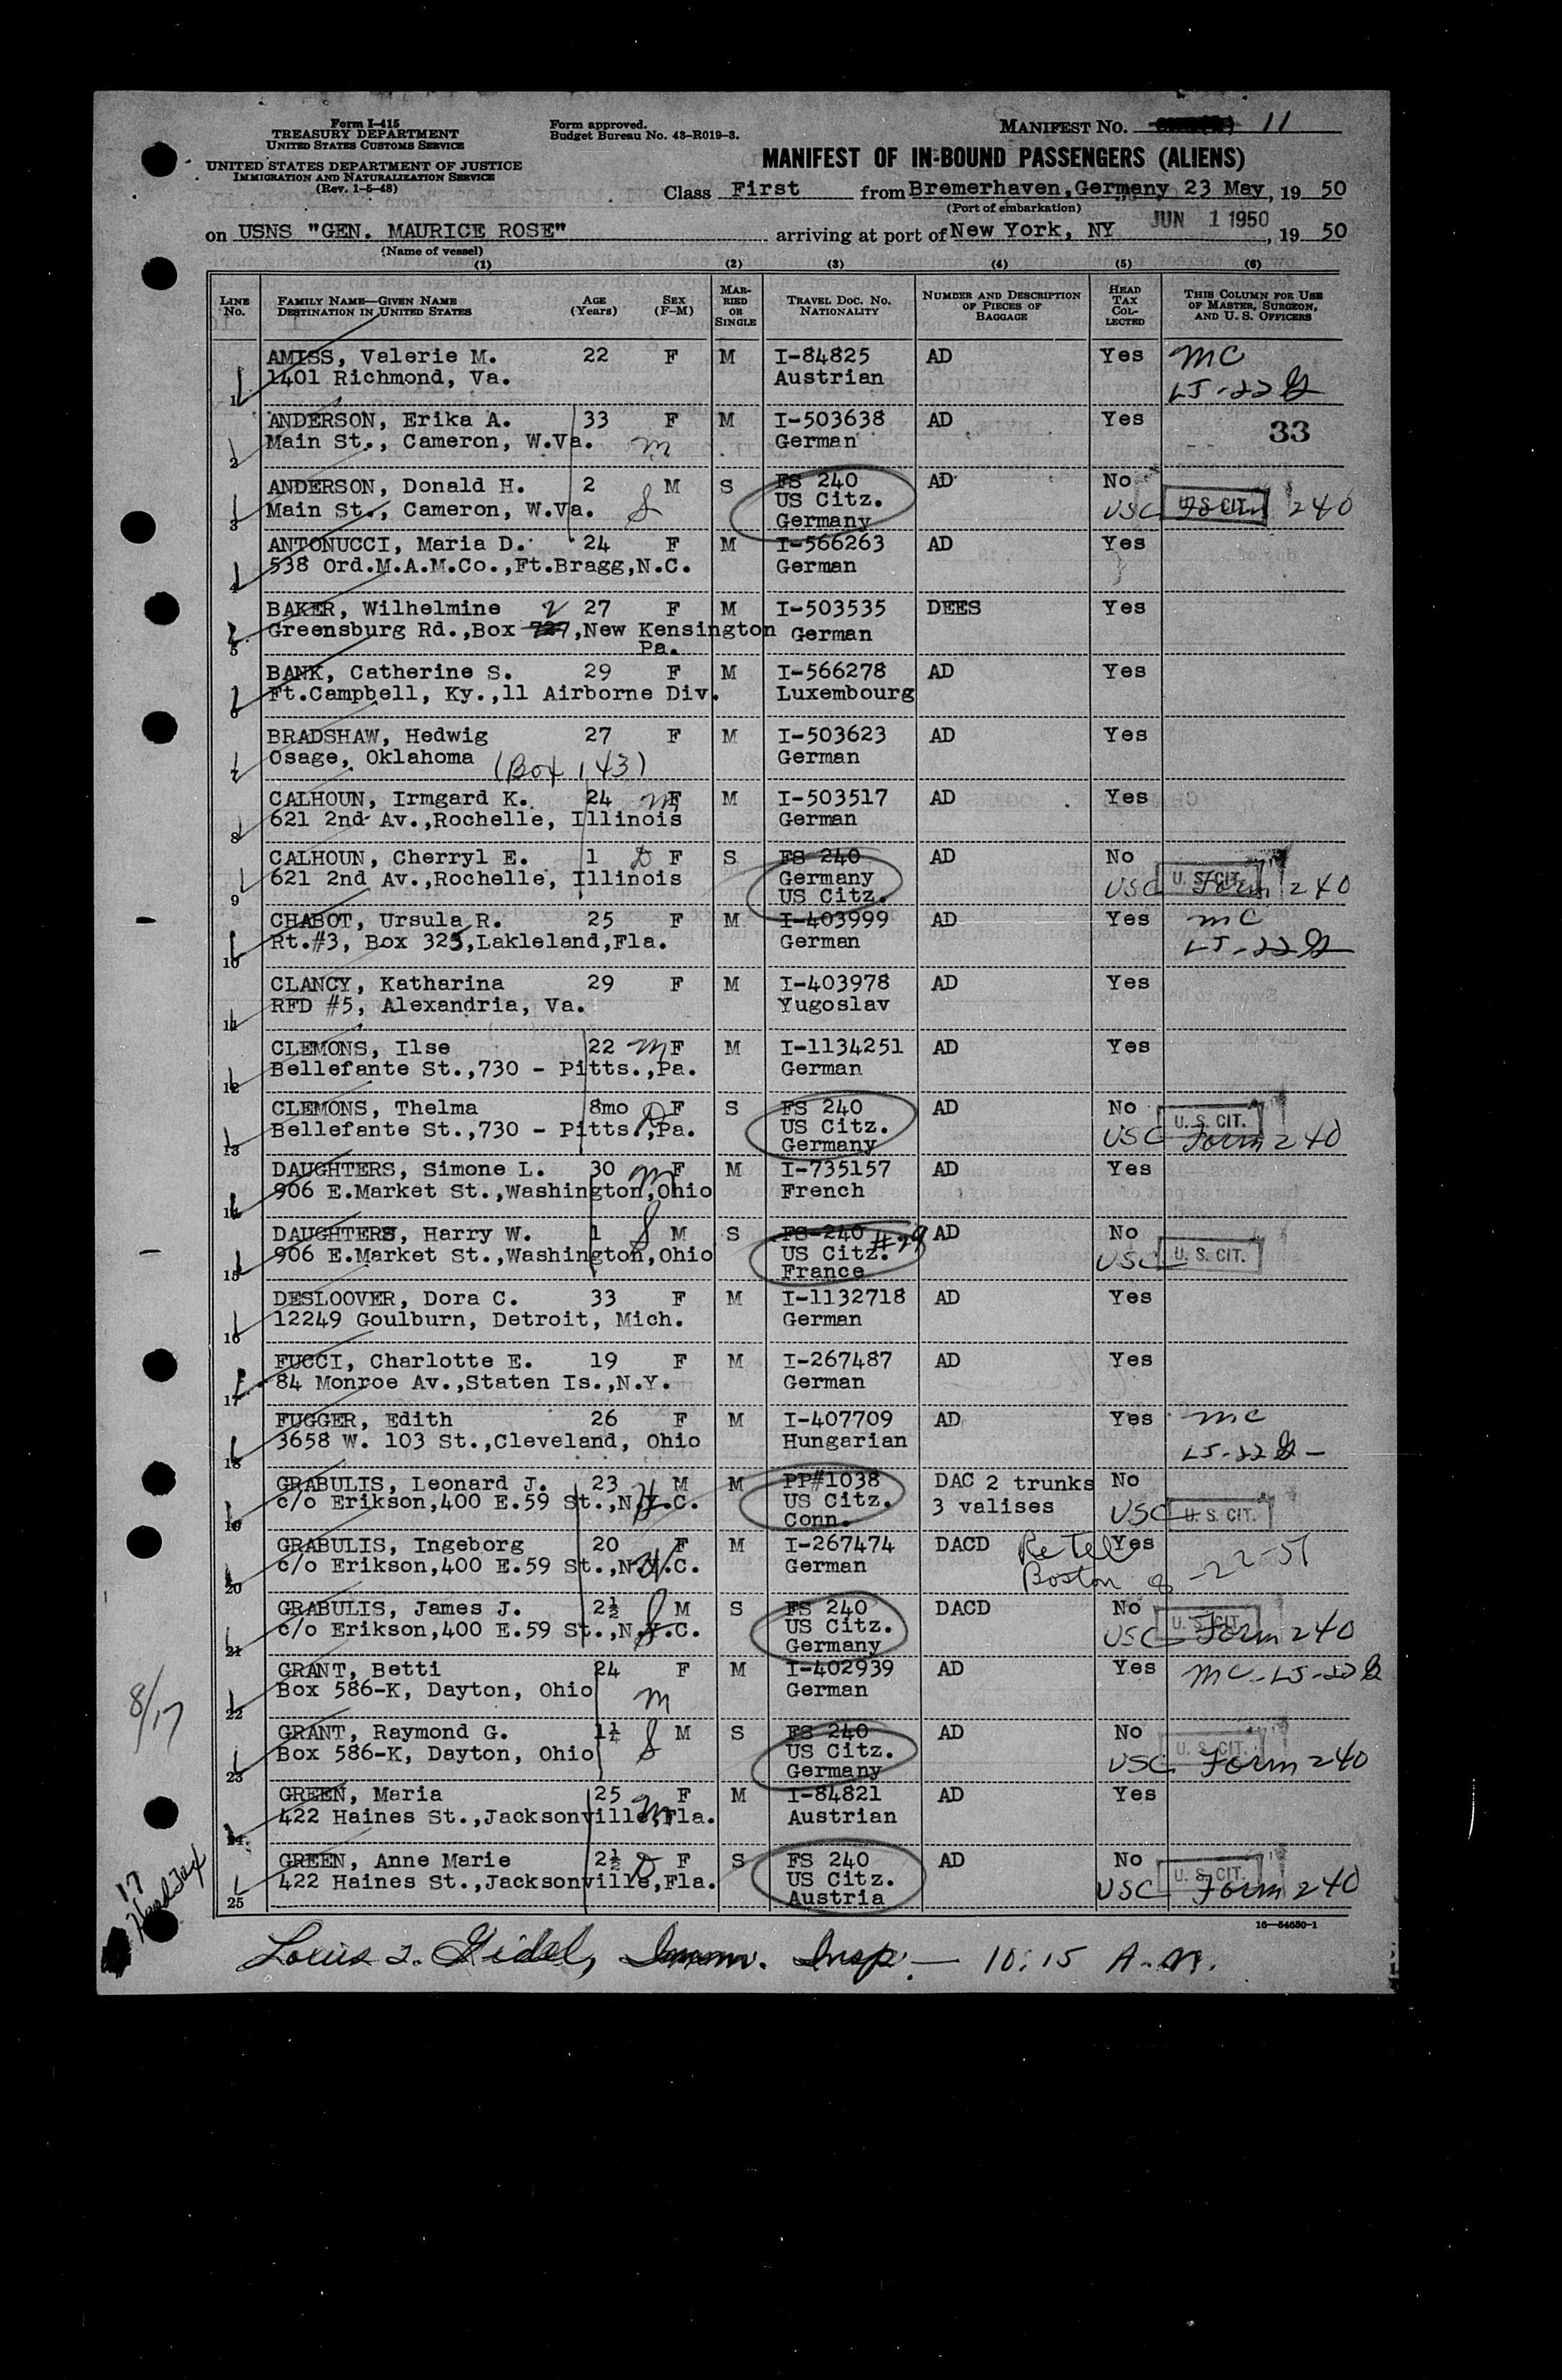 Form I-415
TREASURY DEPARTMENT
UNITED STATES CUSTOMS SERVICE
UNITED STATES DEPARTMENT OF JUSTICE
IMMIGRATION AND NATURALIZATION SERVICE
(Rev. 1-5-48)
Form approved.
Budget Bureau No. 43-R019-3.
MANIFEST NO. 11
MANIFEST OF IN-BOUND PASSENGERS (ALIENS)
Class First from Bremerhaven, Germany 23 May, 19 50
(Port of embarkation)
on USNS "GEN. MAURICE ROSE" arriving at port of New York, NY JUN 1 1950, 19 50
(Name of vessel)
(1) (2) (3) (4) (5) (6)
LINE No. FAMILY NAME—GIVEN NAME DESTINATION IN UNITED STATES AGE (Years) SEX (F-M) MARRIED OR SINGLE TRAVEL DOC. NO. NATIONALITY NUMBER AND DESCRIPTION OF PIECES OF BAGGAGE HEAD TAX COLLECTED THIS COLUMN FOR USE OF MASTER, SURGEON, AND U. S. OFFICERS
1 AMISS, Valerie M. 22 F M I-84825 AD Yes MC
1401 Richmond, Va. Austrian LJ-22
2 ANDERSON, Erika A. 33 F M I-503638 AD Yes 33
Main St., Cameron, W.Va. m German
3 ANDERSON, Donald H. 2 S M S FS 240 AD No
Main St., Cameron, W.Va. US Citz. USC U.S. CIT. Form 240
Germany
4 ANTONUCCI, Maria D. 24 F M I-566263 AD Yes
538 Ord.M.A.M.Co.,Ft.Bragg,N.C. German
5 BAKER, Wilhelmine 2 27 F M I-503535 DEES Yes
Greensburg Rd.,Box 727,New Kensington German
Pa.
6 BANK, Catherine S. 29 F M I-566278 AD Yes
Ft.Campbell, Ky.,11 Airborne Div. Luxembourg
7 BRADSHAW, Hedwig 27 F M I-503623 AD Yes
Osage, Oklahoma (Box 143) German
8 CALHOUN, Irmgard K. 24 m F M I-503517 AD Yes
621 2nd Av.,Rochelle, Illinois German
9 CALHOUN, Cherryl E. 1 D F S FS 240 AD No
621 2nd Av.,Rochelle, Illinois Germany USC U. S. CIT. Form 240
US Citz.
10 CHABOT, Ursula R. 25 F M I-403999 AD Yes MC
Rt.#3, Box 325,Lakleland,Fla. German LJ-22
11 CLANCY, Katharina 29 F M I-403978 AD Yes
RFD #5, Alexandria, Va. Yugoslav
12 CLEMONS, Ilse 22 m F M I-1134251 AD Yes
Bellefante St.,730 - Pitts.,Pa. German
13 CLEMONS, Thelma 8mo D F S FS 240 AD No
Bellefante St.,730 - Pitts.,Pa. US Citz. USC U. S. CIT. Form 240
Germany
14 DAUGHTERS, Simone L. 30 m F M I-735157 AD Yes
906 E.Market St.,Washington,Ohio French
15 DAUGHTERS, Harry W. 1 S M S FS-240 #29 AD No
906 E.Market St.,Washington,Ohio US Citz. USC U. S. CIT.
France
16 DESLOOVER, Dora C. 33 F M I-1132718 AD Yes
12249 Goulburn, Detroit, Mich. German
17 FUCCI, Charlotte E. 19 F M I-267487 AD Yes
84 Monroe Av.,Staten Is.,N.Y. German
18 FUGGER, Edith 26 F M I-407709 AD Yes MC
3658 W. 103 St.,Cleveland, Ohio Hungarian LJ-22
19 GRABULIS, Leonard J. 23 H M M PP#1038 DAC 2 trunks No
c/o Erikson,400 E.59 St.,N.Y.C. US Citz. 3 valises USC U. S. CIT.
Conn.
20 GRABULIS, Ingeborg 20 F M I-267474 DACD Yes
c/o Erikson,400 E.59 St.,N.Y.C. W German Boston -22-51
21 GRABULIS, James J. 2½ S M S FS 240 DACD No
c/o Erikson,400 E.59 St.,N.Y.C. US Citz. USC U. S. CIT. Form 240
Germany
22 GRANT, Betti 24 F M I-402939 AD Yes MC-LJ-22
Box 586-K, Dayton, Ohio m German
23 GRANT, Raymond G. 1½ S M S FS 240 AD No
Box 586-K, Dayton, Ohio US Citz. USC U. S. CIT. Form 240
Germany
8/17
24 GREEN, Maria 25 F M I-84821 AD Yes
422 Haines St.,Jacksonville,Fla. m Austrian
25 GREEN, Anne Marie 2½ D F S FS 240 AD No
422 Haines St.,Jacksonville,Fla. US Citz. USC U. S. CIT. Form 240
Austria
17
Head Tax
16—54650-1
Louis J. Gidel, Imm. Insp. — 10:15 A.M.